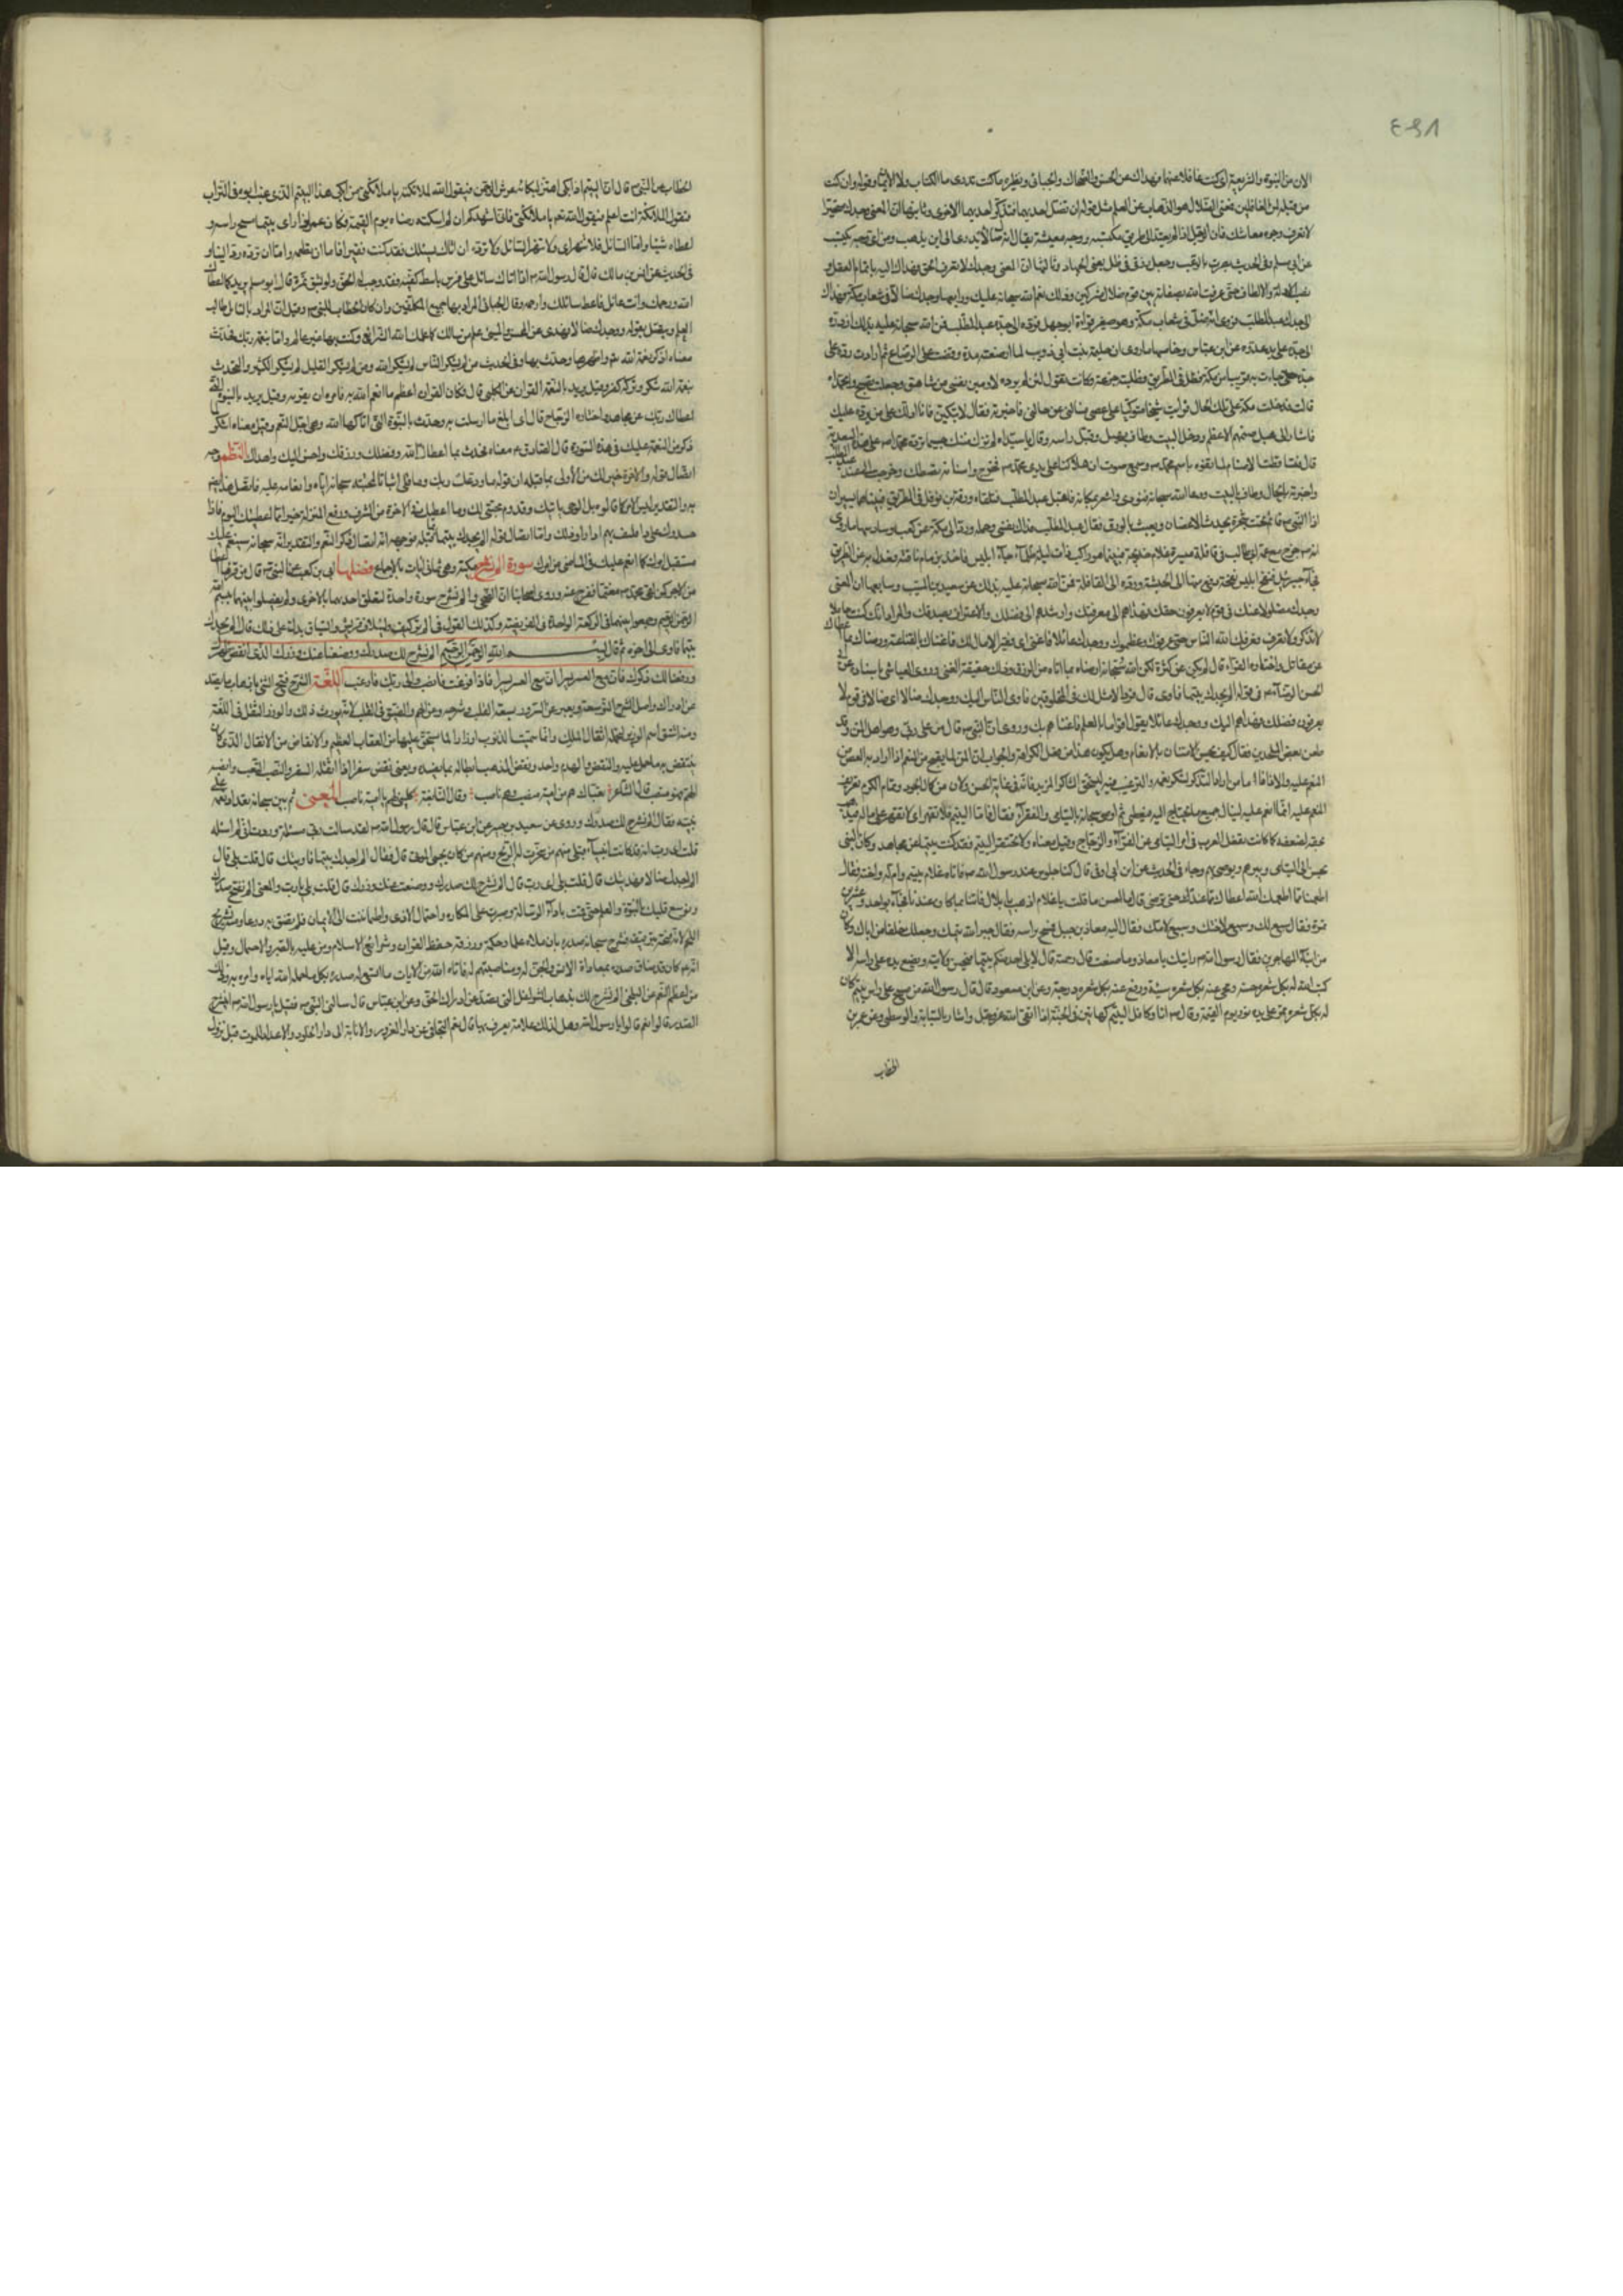 ٤٩٨
الآن من النبوة والشريعة اى كنت غافلا عنهما فهداك عن الحسن والضحاك والجبائى ونظيره ما كنت تدرى ما الكتاب ولا الايمان وقوله وان كنت
من قبله لمن الغافلين فمعنى الضلال هو الذهاب عن العلم مثل قوله ان تضل احديهما فتذكر احديهما الاخرى وثانيها ان المعنى وجدك متحيرا
لا تعرف وجوه معاشك فان الرجل اذا لم يهتد الى طريق مكسبه ووجه معيشته يقال انه ضال لا يدرى الى اين يذهب ومن اى وجه يكتسب
عن ابى مسلم وفى الحديث نصرت بالرعب وجعل رزقى فى ظل يعنى الجهاد وثالثها ان المعنى وجدك لا تعرف الحق فهداك اليه باتمام العقل و
نصب الادلة والالطاف حتى عرفت الله بصفاته بين قوم ضلال مشركين وذلك نعم الله سبحانه عليك ورابعها وجدك ضالا فى شعاب مكة فهداك
الى جدك عبد المطلب فروى انه ضل فى شعاب مكة وهو صغير فرآه ابو جهل فرده الى جده عبد المطلب فمن الله سبحانه عليه بذلك اذ رده
الى جده على يد عدوه عن ابن عباس وخامسها ما روى ان حليمة بنت ابى ذويب لما ارضعته مدة وقضت حق الرضاع ثم ارادت رده على
جده جاءت به حتى قربت من مكة فضل فى الطريق فطلبته جزعة وكانت تقول لئن لم يرده لارمين نفسى من شاهق وجعلت تصيح وا محمداه
قالت فدخلت مكة على تلك الحال فرايت شيخا متوكيا على عصى فسالنى عن حالى فاخبرته فقال لا تبكين فانا ادلك على من يرده عليك
فاشار الى هبل صنمهم الاعظم ودخل البيت وطاف بهبل وقبل راسه وقال يا سيداه لم تزل منتك جسيمة رد محمدا على هذه السعدية
قال فتساقطت الاصنام لما تفوه باسم محمد وسمع صوت ان هلاكنا على يدى محمد فخرج واسنانه تصطك وخرجت الى عبد المطلب
واخبرته بالحال فطاف بالبيت ودعا الله سبحانه فنودى واشعر بمكانه فاقبل عبد المطلب فتلقاه ورقة بن نوفل فى الطريق فبينا هما يسيران
اذا النبى قائم تحت شجرة يجذب الاغصان ويعبث بالورق فقال عبد المطلب فداك نفسى وحمله ورده الى مكة عن كعب وسادسها ما روى
انه خرج مع عمه ابى طالب فى قافلة ميسرة غلام خديجة فبينما هو راكب ذات ليلة ظلماء جاء ابليس فاخذ بزمام ناقته فعدل به عن الطريق
فجاء جبرئيل فنفخ ابليس نفخة رفع بها الى الحبشة ورده الى القافلة فمن الله سبحانه عليه بذلك عن سعيد بن المسيب وسابعها ان المعنى
وجدك مضلولا عنك فى قوم لا يعرفون حقك فهداهم الى معرفتك وارشدهم الى فضلك والاعتراف بصدقك والمراد انك كنت خاملا
لا تذكر ولا تعرف فعرفك الله الناس حتى عرفوك وعظموك ووجدك عائلا فاغنى اى فقيرا لا مال لك فاغناك بالقناعة ورضاك بما اعطاك
عن مقاتل واختاره الفراء قال لم يكن غنى عن كثرة المال لكن الله سبحانه ارضاه بما اتاه من الرزق وذلك حقيقة الغنى وروى العياشى باسناده عن ابى
الحسن الرضا فى قوله الم يجدك يتيما فاوى قال فردا لا مثل لك فى المخلوقين فاوى الناس اليك ووجدك ضالا اى ضالا فى قوم لا
يعرفون فضلك فهداهم اليك ووجدك عائلا يقول اقواما بالعلم فاغناهم بك وروى ان النبى قال من على ربى وهو اهل المن وقد
طعن بعض الملحدين فقال كيف يحسن الامتنان بالانعام وهل يكون هذا من فعل الكرام والجواب ان المن انما يقبح من المنعم اذا اراد به الغض من
المنعم عليه والاذى له فاما من اراد التذكير لشكر نعمه والترغيب فيه ليستحق الشاكر المزيد فانه فى غاية الحسن ولان من كمال الجود وتمام الكرم تعريف
المنعم عليه انه انما انعم عليه ليسال جميع ما يحتاج اليه فيعطى ثم اوصى سبحانه باليتامى والفقراء فقال فاما اليتيم فلا تقهر اى لا تقهره على ماله فتذهب
بحقه لضعفه كما كانت تفعل العرب فى امر اليتامى عن الفراء والزجاج وقيل معناه لا تحتقر اليتيم فقد كنت يتيما عن مجاهد وكان النبى
يحسن الى اليتامى ويبرهم ويوصى بهم وجاء فى الحديث عن ابن ابى اوفى قال كنا جلوسا عند رسول الله فاتاه غلام فقال غلام يتيم وام له واخت فقال
اطعمنا مما اطعمك الله اعطاك الله مما عنده حتى ترضى قال ما احسن ما قلت يا غلام اذهب يا بلال فاتنا بما كان عندنا فجاء بواحدة وعشرين
تمرة فقال سبع لك وسبع لاختك وسبع لامك فقال اليه معاذ بن جبل فمسح براسه وقال جبر الله يتمك وجعلك خلفا من ابيك وكان
من ابناء المهاجرين فقال رسول الله رايتك يا معاذ وما صنعت قال رحمته قال لا يلى احد منكم يتيما فيحسن ولايته ويضع يده على راسه الا
كتب الله له بكل شعرة حسنة ومحى عنه بكل شعرة سيئة ورفع عنه بكل شعرة درجة وعن ابن مسعود قال قال رسول الله من مسح على راس يتيم كان
له بكل شعرة تمر على يده نور يوم القيمة وقال انا وكافل اليتيم كهاتين فى الجنة اذا اتقى الله عز وجل واشار بالسبابة والوسطى وعن عمر بن
الخطاب
الخطاب عن النبى قال ان اليتيم اذا بكى اهتز لبكائه عرش الرحمن فيقول الله لملائكته يا ملائكتى من ابكى هذا اليتيم الذى غيب ابوه فى التراب
فتقول الملائكة انت اعلم فيقول الله تعالى يا ملائكتى فانى اشهدكم ان لمن اسكته رضاه يوم القيمة وكان عمر اذا راى يتيما مسح راسه و
اعطاه شيئا واما السائل فلا تنهر اى ولا تنهر السائل ولا ترده ان اتاك يسئلك فقد كنت فقيرا فاما ان تطعمه واما ان ترده ردا لينا و
فى الحديث عن انس بن مالك قال قال رسول الله اذا اتاك سائل على فرس باسط كفيه فقد وجب له الحق ولو بشق تمرة قال ابو مسلم يريد كما اعطاك
الله ورحمك وانت عائل فاعط سائلك وارحمه وقال الجبائى المراد بها جميع المكلفين وان كان الخطاب للنبى وقيل ان المراد بالسائل طالب
العلم ويتصل بقوله ووجدك ضالا فهدى عن الحسن والمعنى علم من سالك كما علمك الله الشرائع وكنت بها غير عالم واما بنعمة ربك فحدث
معناه اذكر نعمة الله واظهرها وحدث بها وفى الحديث من لم يشكر الناس لم يشكر الله ومن لم يشكر القليل لم يشكر الكثير والتحدث
بنعمة الله شكر وتركه كفر وقيل يريد بالنعمة القران عن الكلبى قال وكان القران اعظم ما انعم الله به فامره ان يقرئه وقيل يريد بالنبوة التى
اعطاك ربك عن مجاهد واختاره الزجاج قال اى بلغ ما ارسلت به وحدث بالنبوة التى اتاكها الله وهى اجل النعم وقيل معناه اشكر لما
ذكر من النعمة عليك فى هذه السورة قال الصادق معناه فحدث بما اعطاك الله وفضلك ورزقك واحسن اليك وهداك النظم وجه
اتصال قوله وللاخرة خير لك من الاولى بما قبله ان قوله ما ودعك ربك وما قلى اثباتا لمحبته سبحانه اياه وانعامه عليه فاتصل هذا ايضا
به والتقدير ليس الامر كما قالوه بل الوحى ياتيك وتدوم محبتى لك وما اعطيك فى الاخرة من الشرف ورفع المنزلة خير مما اعطيتك اليوم فاذا
حسدوك على ذا فكيف بهم اذا راوا ذلك واما اتصال قوله الم يجدك يتيما بما قبله فوجهه انه اتصال ذكر النعم والتقدير انه سبحانه سينعم عليك
مستقبل امرك كما انعم عليك فى الماضى من امرك سورة الم نشرح مكية وهى ثمانى ايات بالاجماع فضلها ابى بن كعب عن النبى قال من قراها اعطى
من الاجر كمن لقى محمدا مغتما ففرج عنه وروى اصحابنا ان الضحى والم نشرح سورة واحدة لتعلق احديهما بالاخرى ولم يفصلوا بينهما ببسم الله
الرحمن الرحيم وجمعوا بينهما فى الركعة الواحدة فى الفريضة وكذلك القول فى الم تر كيف ولايلاف قريش والسياق يدل على ذلك قال الم يجدك
يتيما فاوى الى اخره ثم قال بسم الله الرحمن الرحيم الم نشرح لك صدرك ووضعنا عنك وزرك الذى انقض ظهرك
ورفعنا لك ذكرك فان مع العسر يسرا ان مع العسر يسرا فاذا فرغت فانصب والى ربك فارغب اللغة الشرح فتح الشئ باذهاب ما يصد
عن ادراكه واصل الشرح التوسعة ويعبر عن السرور بسعة القلب وشرحه وعن الهم والضيق فى القلب لانه يورث ذلك والوزر الثقل فى اللغة
ومنه اشتق اسم الوزير لتحمله اثقال الملك وانما سميت الذنوب اوزارا لما يستحق عليها من العقاب العظيم والانقاض من الاثقال الذى كان
ينتقض به ما حمل عليه والنقض والهدم واحد ونقض المذهب ابطاله بما يفسده وبعير نقض سفر اذا اثقله السفر والنصب التعب وانصبه
الهم فهو منصب قال الشاعر تعناك هم من اميمة منصب وهم ناصب وقال النابغة كلينى لهم يا اميمة ناصب المعنى ثم بين سبحانه تعداد نعمه على
نبيه فقال الم نشرح لك صدرك وروى عن سعيد بن جبير عن ابن عباس قال قال رسول الله لقد سالت ربى مسئلة وددت انى لم اسئله
قلت اى رب انه قد كانت انبياء قبلى منهم من سخرت له الريح ومنهم من كان يحيى الموتى قال فقال الم اجدك يتيما فاويتك قال قلت بلى قال
الم اجدك ضالا فهديتك قال قلت بلى اى رب قال الم نشرح لك صدرك ووضعت عنك وزرك قال قلت بلى يا رب والمعنى الم نفتح صدرك
ونوسع قلبك بالنبوة والعلم حتى قمت باداء الرسالة وصبرت على المكاره واحتمال الاذى واطماننت الى الايمان فلم يضق به ذرعا ومنه تشريح
اللحم لانه فتحه بترقيقه فشرح سبحانه صدره بان ملاه علما وحكمة ورزقه حفظ القران وشرائع الاسلام ومن عليه بالصبر والاحتمال وقيل
انه كان قد ضاق صدره بمعاداة الانس والجن له ومناصبتهم له فاتاه الله من الايات ما اتسع له صدره بكل ما حمله الله اياه وامره به وذلك
من اعظم النعم عن البلخى الم نشرح لك باذهاب الشواغل التى تصد عن ادراك الحق وعن ابن عباس قال سئل النبى فقيل يا رسول الله اينشرح
الصدر قال نعم قالوا يا رسول الله وهل لذلك علامة يعرف بها قال نعم التجافى عن دار الغرور والانابة الى دار الخلود والاعداد للموت قبل نزول